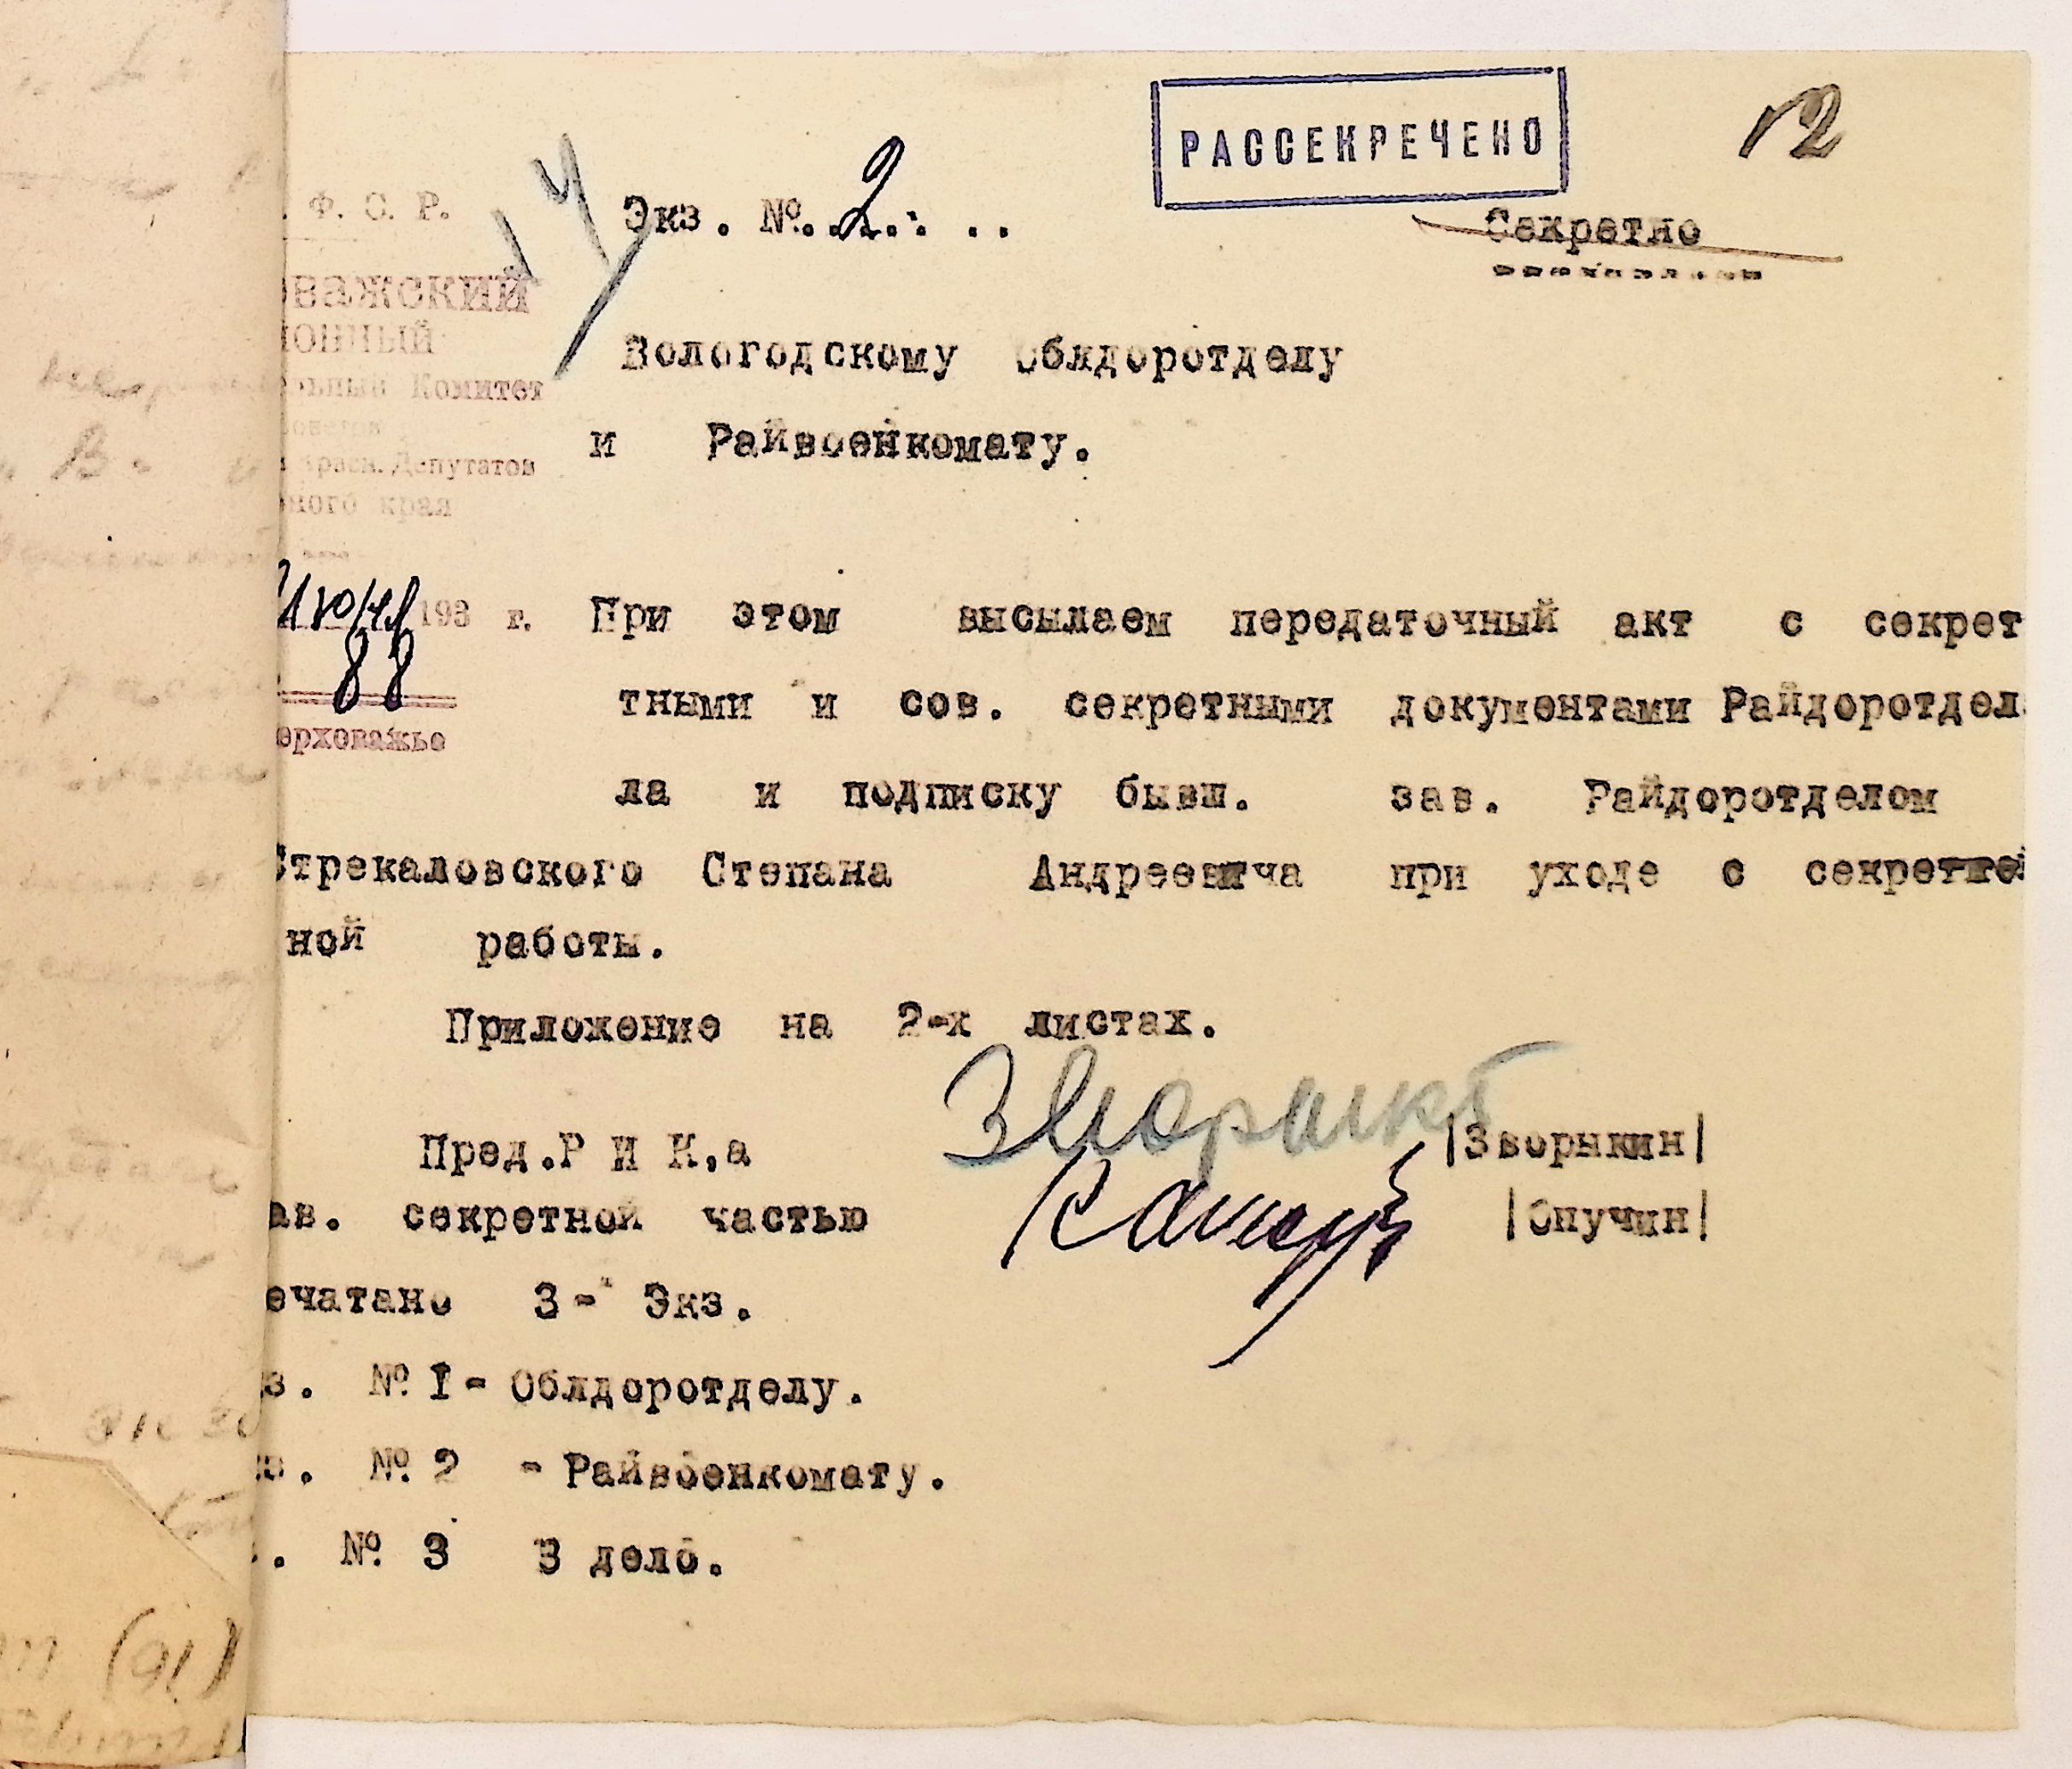 РАССЕКРЕЧЕНО
12
. Ф. С. Р.
Экз. №..2.. ..
Секретно
важский
онный
Вологодскому Облдоротделу
льный Комитет
и Райвоенкомату.
красн. Депутатов
ного края
193 г. При этом высылаем передаточный акт с секрет
88
тными и сов. секретными документами Райдоротдел
ерховажье
ла и подписку бывш. зав. Райдоротделом
Стрекаловского Степана Андреевича при уходе с секретной
ной работы.
Приложение на 2-х листах.
Пред.Р И К,а |Зворыкин|
ав. секретной частью |Опучин|
ечатано 3- Экз.
з. № I- Облдоротделу.
з. № 2 - Райвоенкомату.
. № 3 В дело.
(91)